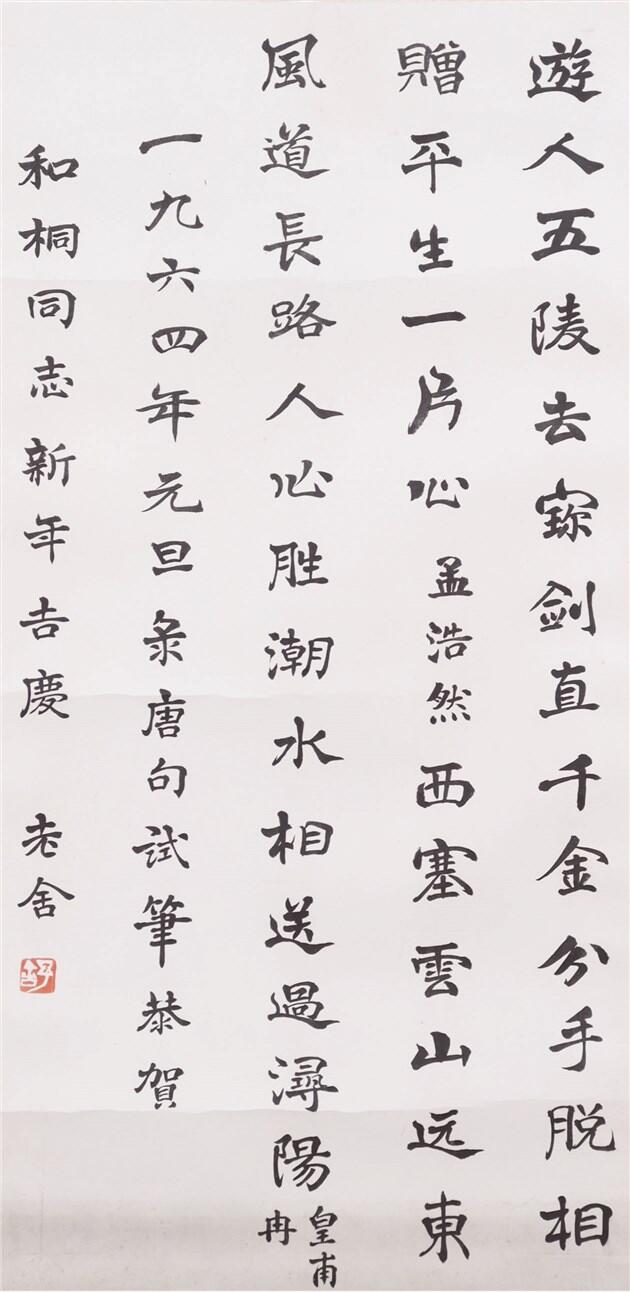 遊人五陵去寳劍直千金分手脱相
贈平生一片心 孟浩然 西塞雲山远東
風道長路人心胜潮水相送過潯陽 皇甫冉
一九六四年元旦录唐句试筆恭賀
和桐同志新年吉慶 老舍
舒